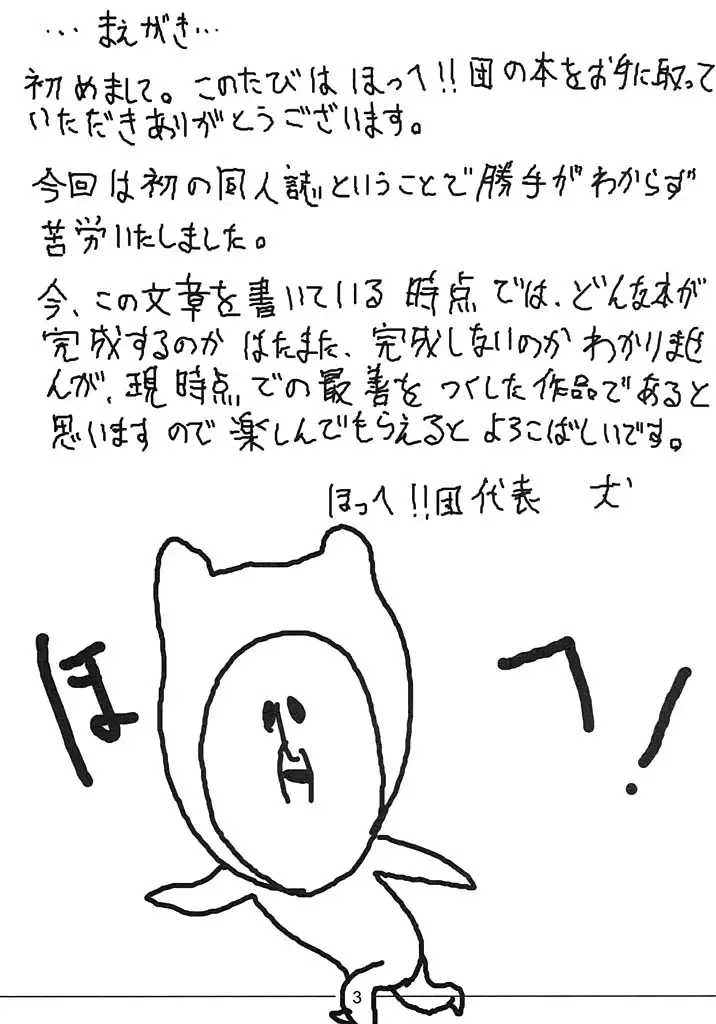 …まえがき…
初めまして。このたびは ほっへ!!団の本をお手に取って
いただきありがとうございます。
今回は初の同人誌ということで勝手がわからず
苦労いたしました。
今、この文章を書いている時点では、どんな本が
完成するのか はたまた、完成しないのか わかりませ
んが、現時点での最善を つくした作品であると
思いますので楽しんでもらえると よろこばしいです。
ほっへ!!団代表
ほ へ!
3